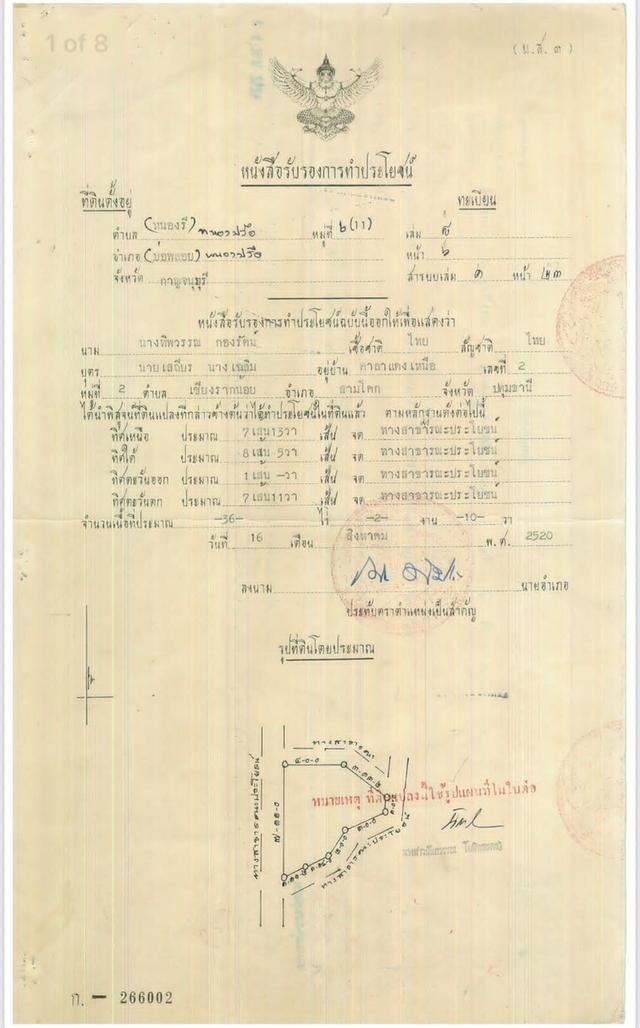 1 of 8
(น.ส. ๓)
หนังสือรับรองการทำประโยชน์
ที่ดินตั้งอยู่
ทะเบียน
ตำบล (หนองรี) หนองปรือ หมู่ที่ ๖ (11) เล่ม
อำเภอ (บ่อพลอย) หนองปรือ หน้า ๖
จังหวัด กาญจนบุรี สารบบเล่ม หน้า ๒๓
หนังสือรับรองการทำประโยชน์ฉบับนี้ออกให้เพื่อแสดงว่า
นาม นางทิพวรรณ กองรัตน์ เชื้อชาติ ไทย สัญชาติ ไทย
บุตร นายเสถียร นางเฉลิม อยู่บ้าน ศาลาแดงเหนือ เลขที่ 2
หมู่ที่ 2 ตำบล เชียงรากน้อย อำเภอ สามโคก จังหวัด ปทุมธานี
ได้นำพิสูจน์ที่ดินแปลงที่กล่าวข้างต้นว่าได้ทำประโยชน์ในที่ดินแล้ว ตามหลักฐานดังต่อไปนี้
ทิศเหนือ ประมาณ 7 เส้น 13 วา เส้น จด ทางสาธารณะประโยชน์
ทิศใต้ ประมาณ 8 เส้น 5 วา เส้น จด ทางสาธารณะประโยชน์
ทิศตะวันออก ประมาณ 1 เส้น -วา เส้น จด ทางสาธารณะประโยชน์
ทิศตะวันตก ประมาณ 7 เส้น 11 วา เส้น จด ทางสาธารณะประโยชน์
จำนวนเนื้อที่ประมาณ -36- ไร่ -2- งาน -10- วา
วันที่ 16 เดือน สิงหาคม พ.ศ. 2520
ลงนาม นายอำเภอ
ประทับตราตำแหน่งเป็นสำคัญ
รูปที่ดินโดยประมาณ
ทางสาธารณะ
๔-๐-๐
ทางสาธารณประโยชน์
หมายเหตุ ที่ดินแปลงนี้ใช้รูปแผนที่ในใบต่อ
ทางสาธารณะประโยชน์
ก. - 266002